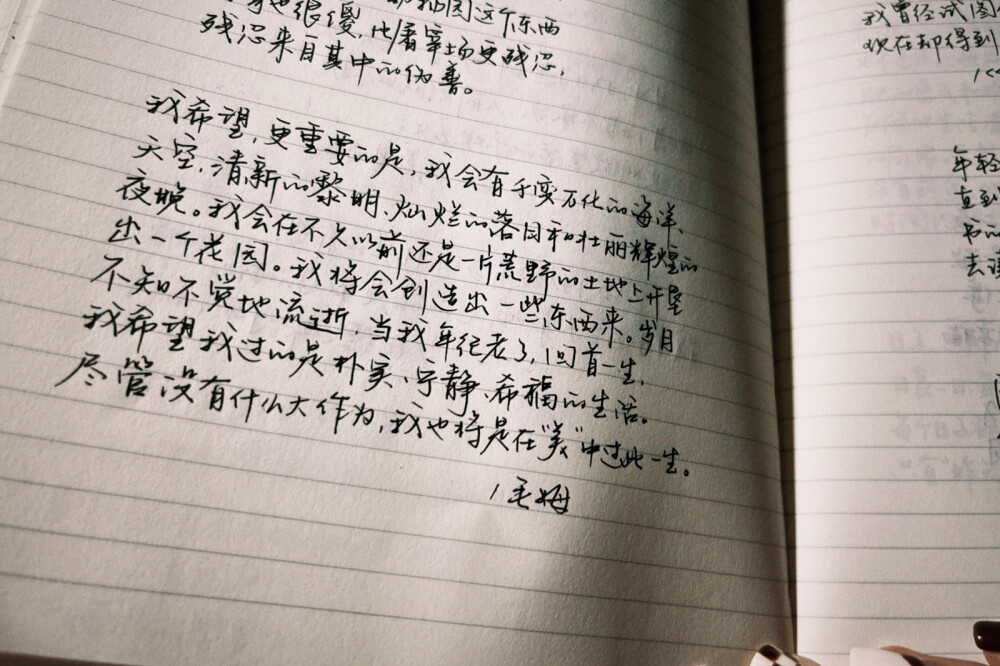 这个东西
也很傻，比看宰场更残忍，
残忍来自其中的伪善。
我希望，更重要的是，我会有千变万化的海洋、
天空，清新的黎明、灿烂的落日和壮丽辉煌的
夜晚。我会在不久以前还是一片荒野的土地上开垦
出一个花园。我将会创造出一些东西来。岁月
不知不觉地流逝，当我年纪老了，回首一生，
我希望我过的是朴实、宁静、希福的生活。
尽管没有什么大作为，我也将是在"美"中过此一生。
/毛姆
我曾经试图
现在却得到
年轻
直到
书的
去